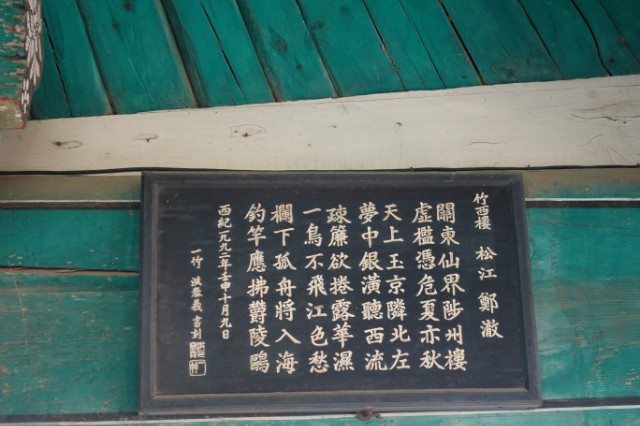 竹西樓 松江 鄭澈
關東仙界陟州樓
虛檻憑危夏亦秋
天上玉京隣北左
夢中銀潢聽西流
疎簾欲捲露華濕
一鳥不飛江色愁
欄下孤舟將入海
釣竿應拂鬱陵鷗
西紀一九九二年壬申十月九日
一竹 洪 書刻